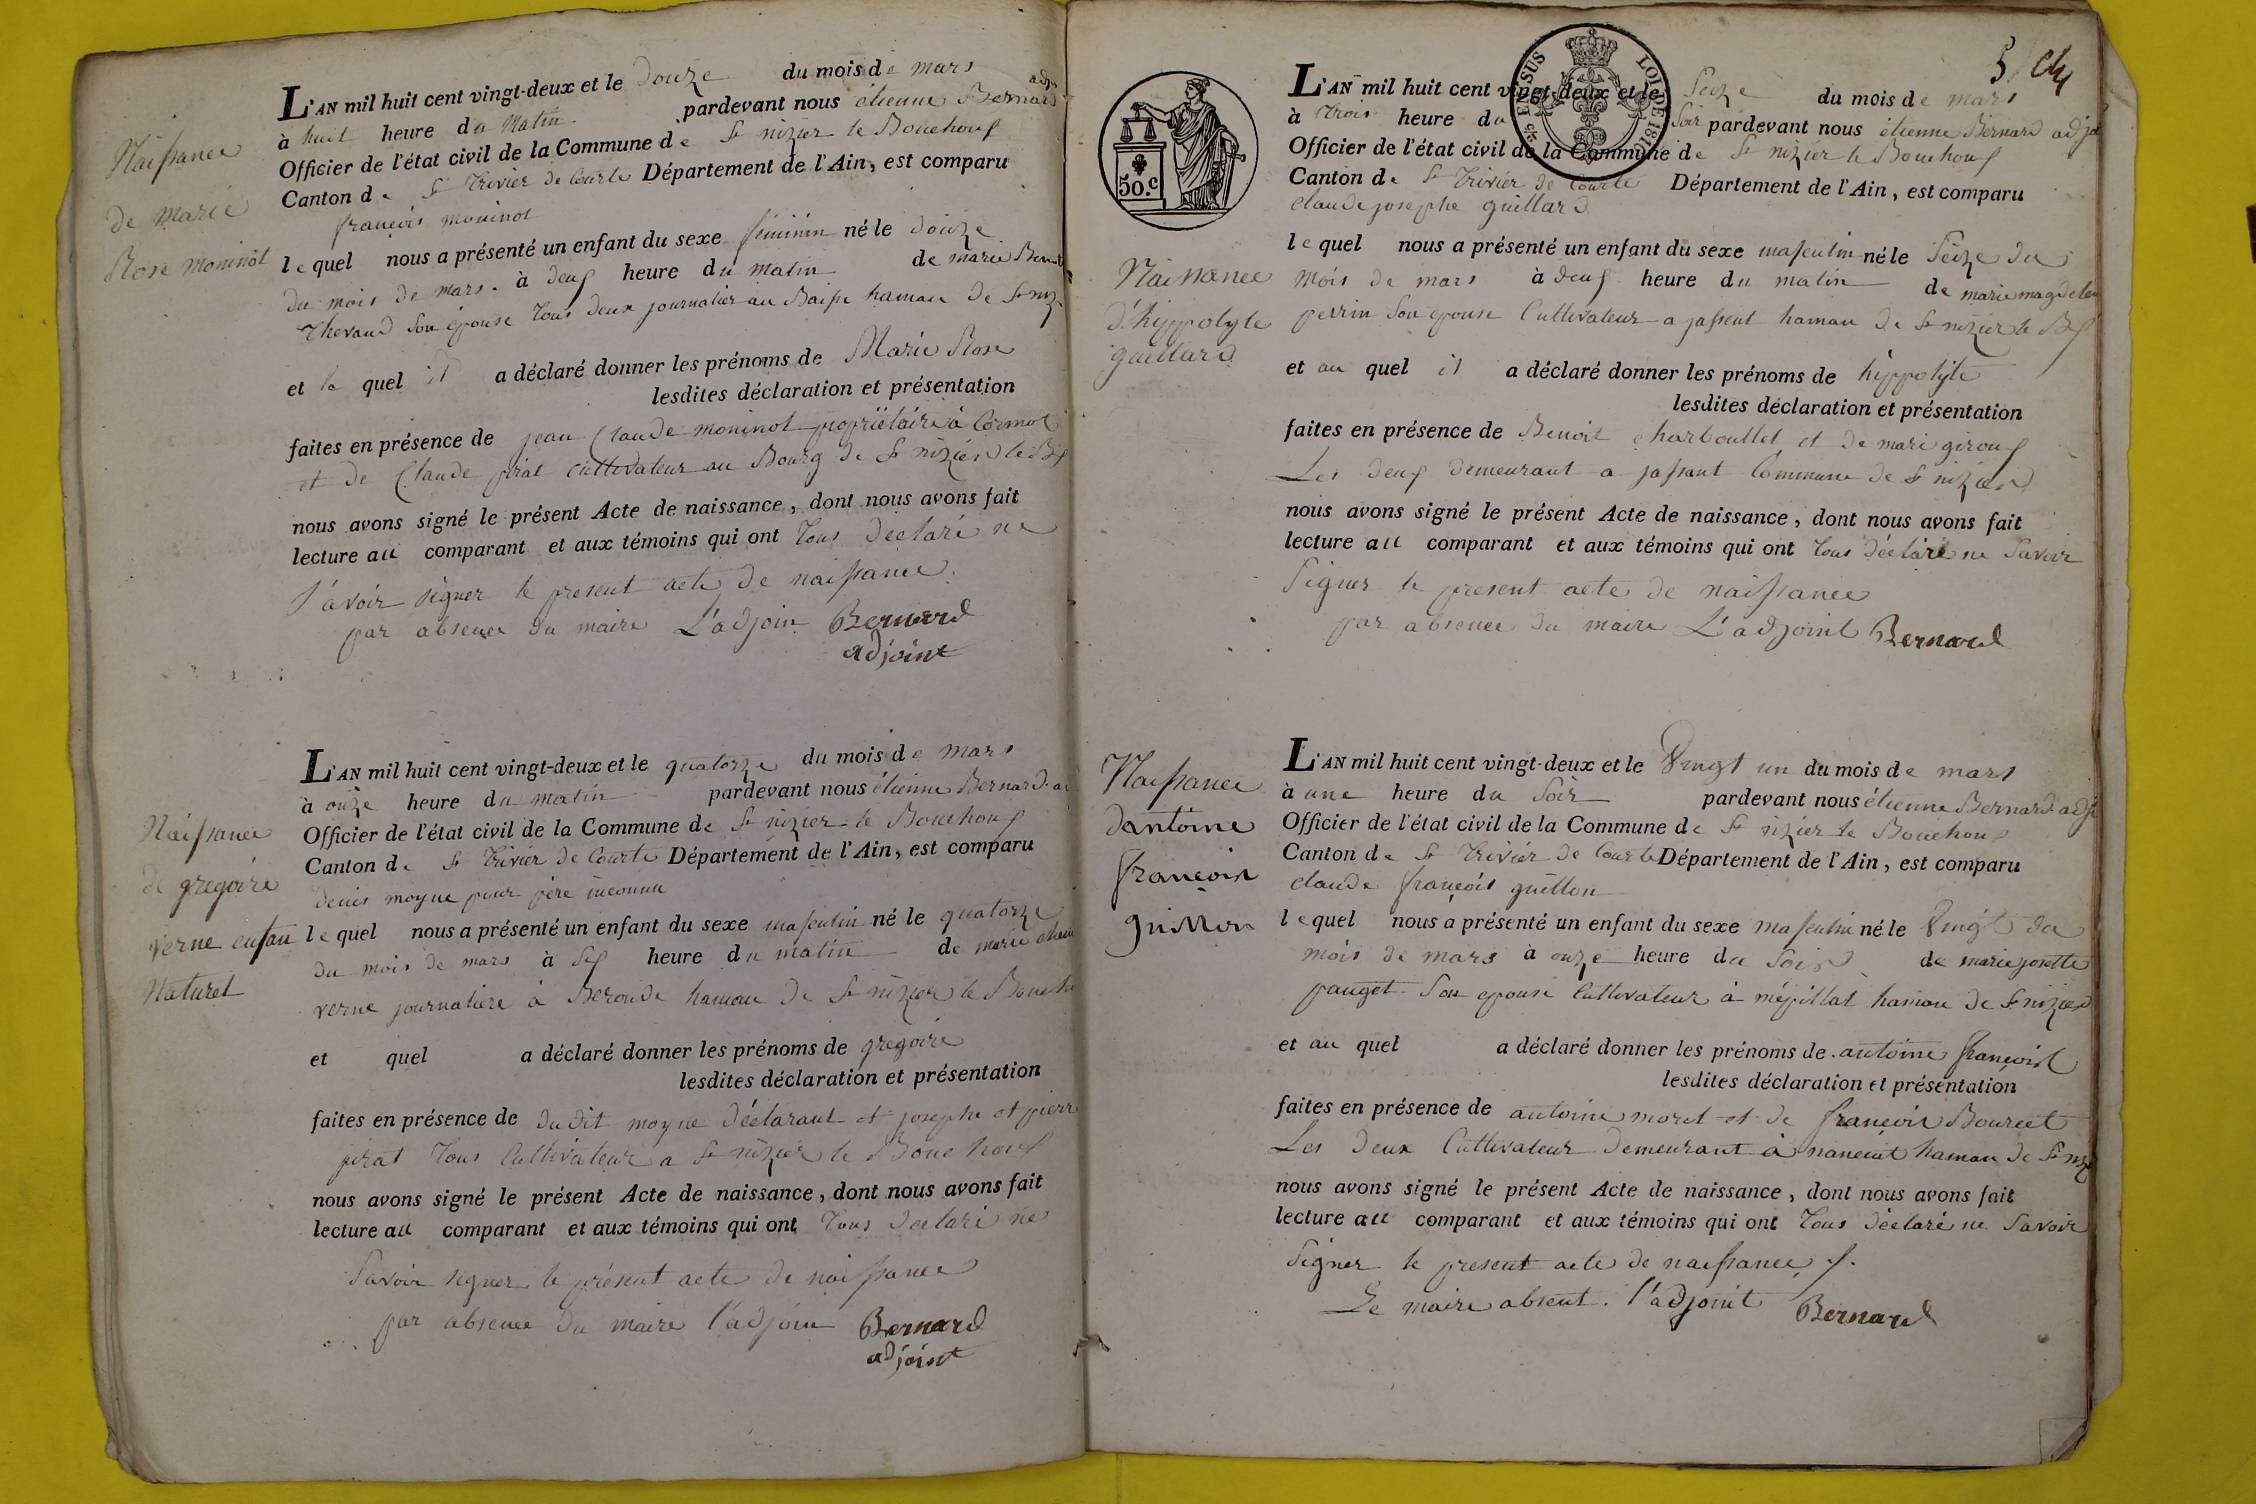 Naissance
de marie
Rose moninot
L'AN mil huit cent vingt-deux et le douze du mois de mars
à huit heure du Matin pardevant nous étienne Bernard adj
Officier de l'état civil de la Commune de St nizier le Bouchoux
Canton de St trivier de Courte Département de l'Ain, est comparu
françois moninot
lequel nous a présenté un enfant du sexe féminin né le douze
du mois de mars. à deux heure du matin de marie
thevand Son épouse tous deux journalier au hamau de St niz
et le quel il a déclaré donner les prénoms de Marie Rose
lesdites déclaration et présentation
faites en présence de jean Claude moninot propriétaire à Cormoz
et de Claude pirat cultivateur au Bourg de St nizier le Bx
nous avons signé le présent Acte de naissance, dont nous avons fait
lecture au comparant et aux témoins qui ont tous déclaré ne
savoir signer le present acte de naissance.
par absence du maire L'adjoin Bernard
adjoint
Naissance
de gregoire
verne enfan
Naturel
L'AN mil huit cent vingt-deux et le quatorze du mois de mars
à onze heure du matin pardevant nous étienne Bernard. ad
Officier de l'état civil de la Commune de St nizier le Bouchoux
Canton de St trivier de Courte Département de l'Ain, est comparu
denis moyne pour père inconnu
lequel nous a présenté un enfant du sexe masculin né le quatorze
du mois de mars à six heure du matin de marie
verne journaliere à Beronde hamau de St nizier le Bouch
et quel a déclaré donner les prénoms de gregoire
lesdites déclaration et présentation
faites en présence de du dit moyne déclarant et josephe et pierre
pirat tous Cultivateur a St nizier le Bouchoux
nous avons signé le présent Acte de naissance, dont nous avons fait
lecture au comparant et aux témoins qui ont tous declaré ne
Savoir signer le présent acte de naissance
par absence du maire l'adjoin Bernard
adjoint
5
50.c
LOI DE 181
Naissance
d'hippolyte
guillard
L'AN mil huit cent vingt-deux et le Seize du mois de mars
à trois heure du Soir pardevant nous étienne Bernard adjoi
Officier de l'état civil de la Commune de St nizier le Bouchoux
Canton de St trivier de Courte Département de l'Ain, est comparu
claude josephe guillard
lequel nous a présenté un enfant du sexe masculin né le Seize du
mois de mars à deux heure du matin de marie magdelen
perrin Son epouse Cultivateur a jassent hamau de St nizier le Bx
et au quel il a déclaré donner les prénoms de hippolyte
lesdites déclaration et présentation
faites en présence de Benoit charboullet et de mari giroux
Les deux demeurant a jassant Commune de St nizier
nous avons signé le présent Acte de naissance, dont nous avons fait
lecture au comparant et aux témoins qui ont tous déclaré ne Savoir
Signer le present acte de naissance
par absence du maire L'adjoint Bernard
Naissance
dantoine
françois
guillon
L'AN mil huit cent vingt-deux et le Vingt un du mois de mars
à une heure du Soir pardevant nous étienne Bernard adj
Officier de l'état civil de la Commune de St nizier le Bouchoux
Canton de St trivier de Courte Département de l'Ain, est comparu
claude françois guillon
lequel nous a présenté un enfant du sexe masculin né le Vingt du
mois de mars à onze heure du Soir de marie josette
pauget Son epouse Cultivateur à mépillat hamau de St nizier
et au quel a déclaré donner les prénoms de antoine françois
lesdites déclaration et présentation
faites en présence de antoine morel et de françois Bourcet
Les deux Cultivateur demeurant à nanciat hamau de St niz
nous avons signé le présent Acte de naissance, dont nous avons fait
lecture au comparant et aux témoins qui ont tous déclaré ne Savoir
Signer le present acte de naissance ./.
Le maire absent. l'adjoint Bernard